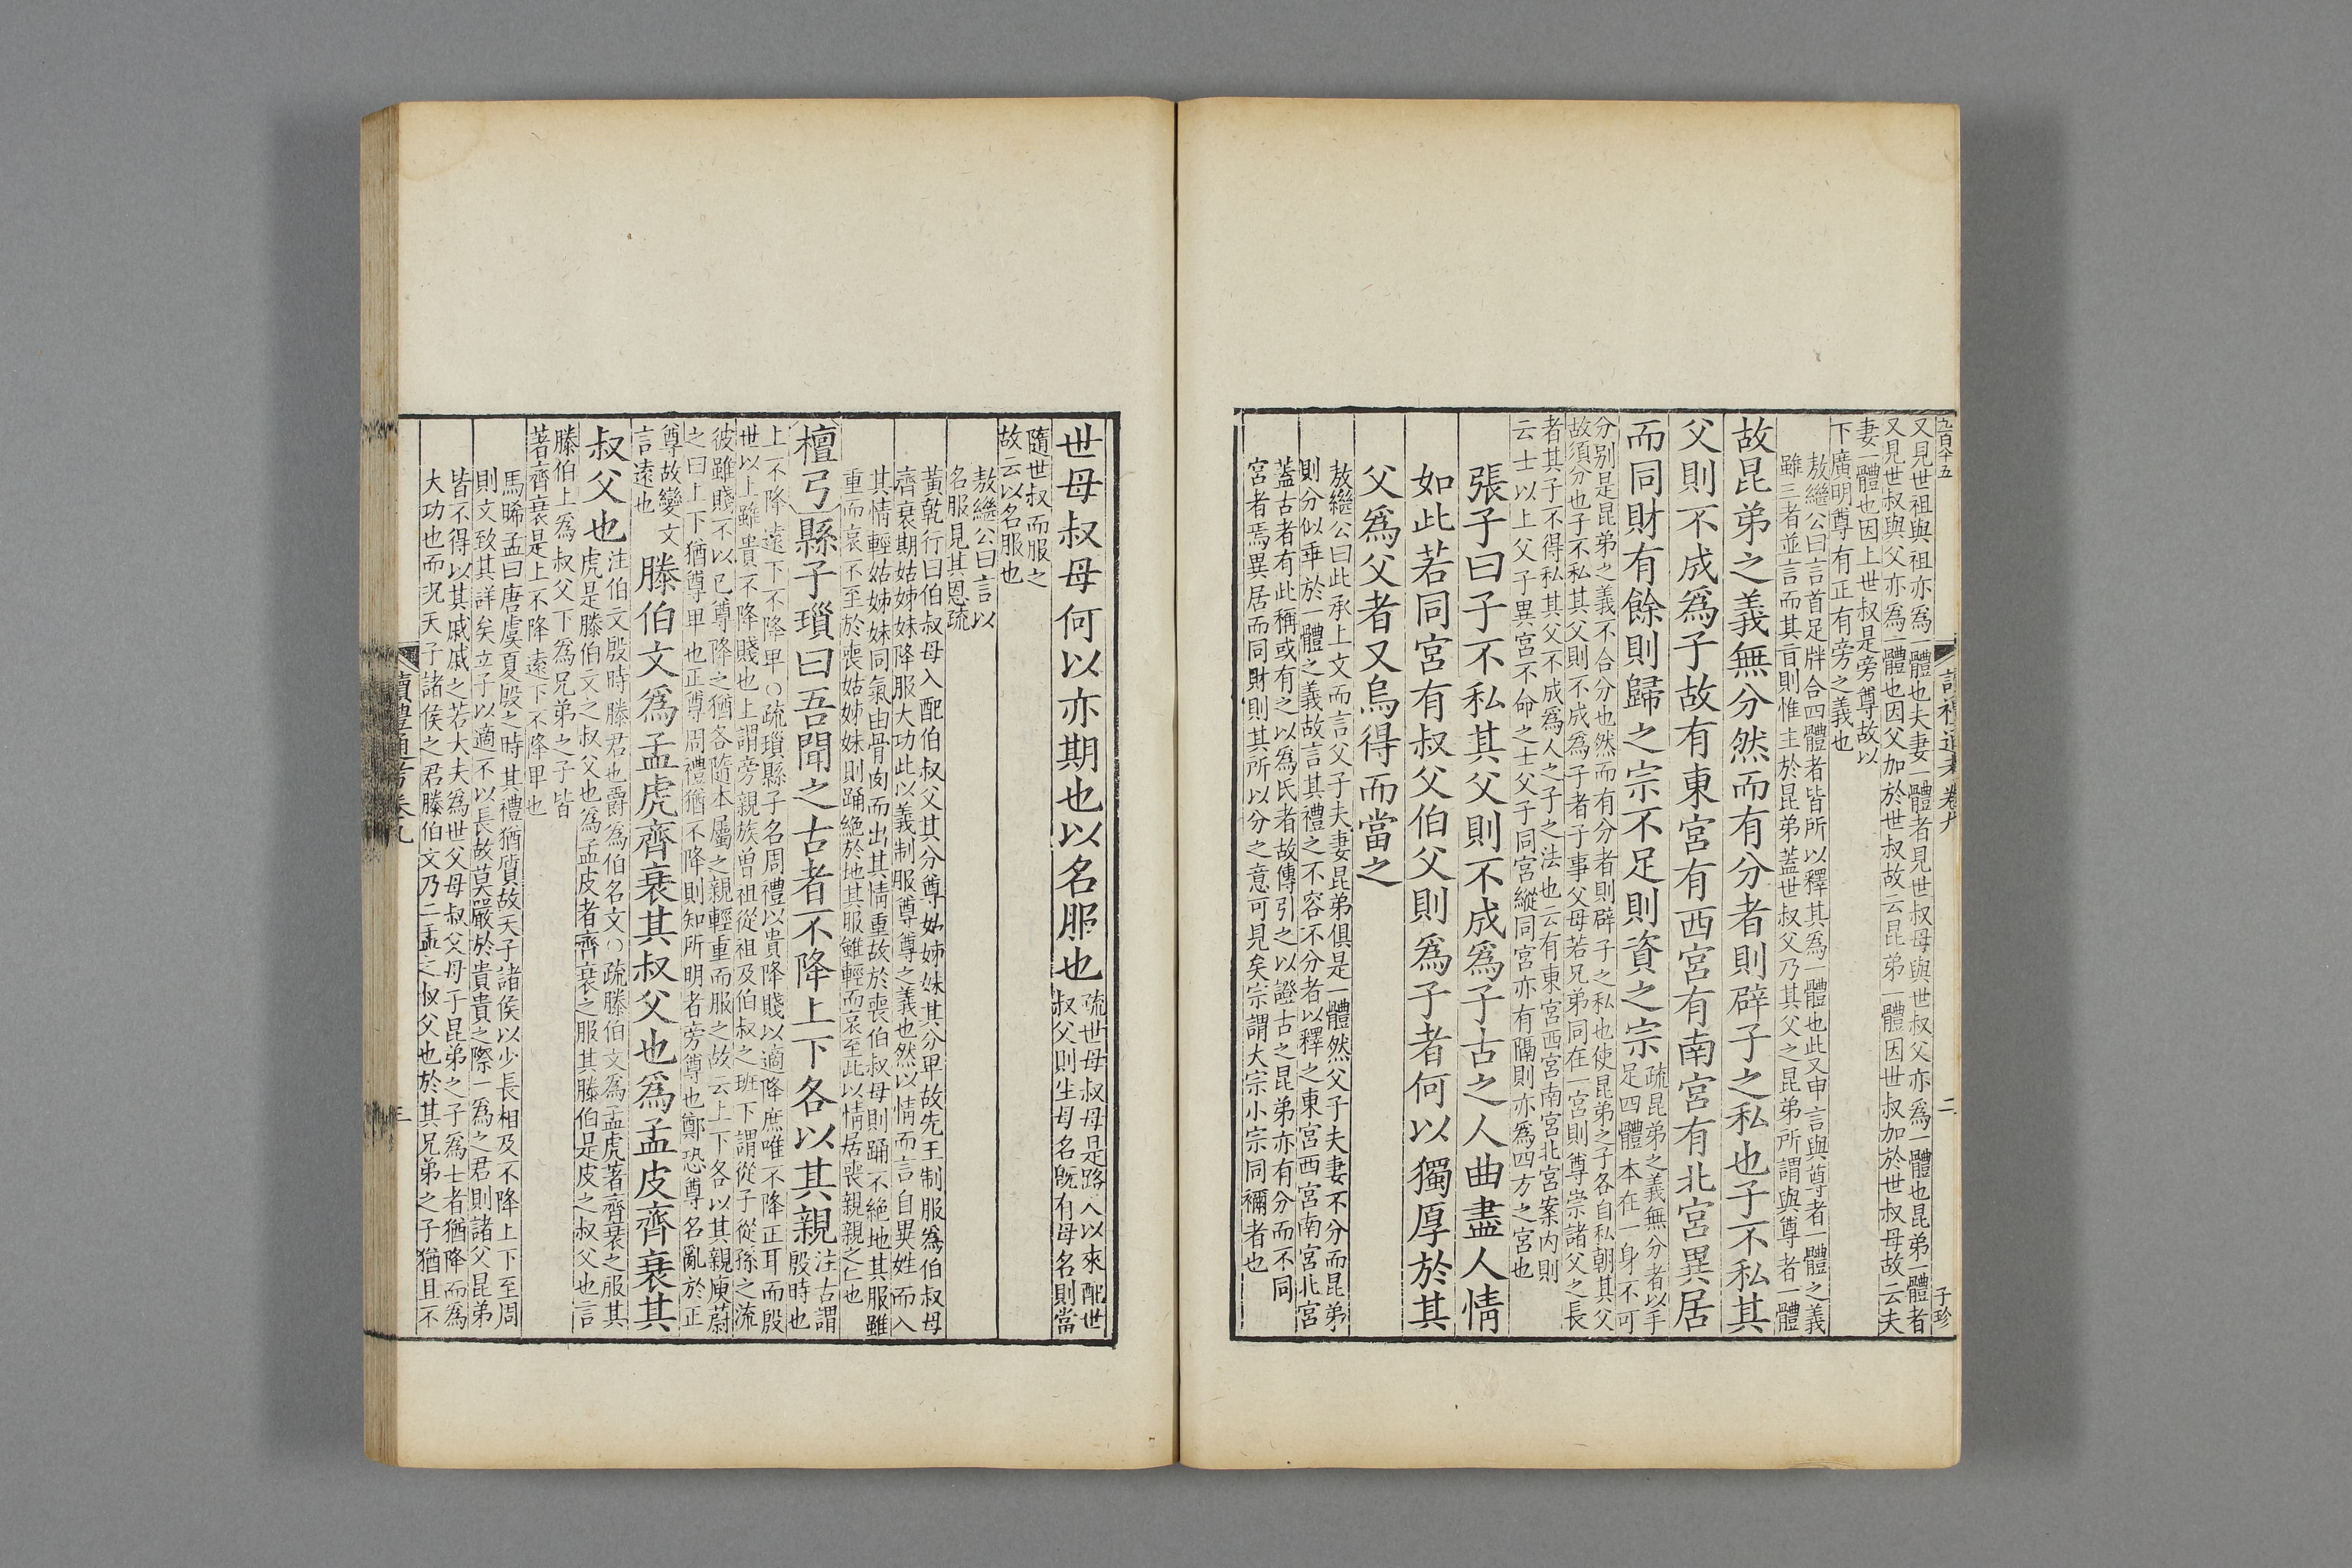 九百十五
讀禮通考 卷九
二
子珍
又見世祖與祖亦爲一體也夫妻一體者見世叔母與世叔父亦爲一體也昆弟一體者
又見世叔與父亦爲一體也因父加於世叔故云昆弟一體因世叔加於世叔母故云夫
妻一體也因上世叔是旁尊故以
下廣明尊有正有旁之義也
敖繼公曰言首足牉合四體者皆所以釋其爲一體也此又申言與尊者一體之義
雖三者並言而其言則惟主於昆弟蓋世叔父乃其父之昆弟所謂與尊者一體
故昆弟之義無分然而有分者則辟子之私也子不私其
父則不成爲子故有東宮有西宮有南宮有北宮異居
而同財有餘則歸之宗不足則資之宗
疏昆弟之義無分者以手
足四體本在一身不可
分別是昆弟之義不合分也然而有分者則辟子之私也使昆弟之子各自私朝其父
故須分也子不私其父則不成爲子者子事父母若兄弟同在一宮則尊崇諸父之長
者其子不得私其父不成爲人之子之法也云有東宮西宮南宮北宮案內則
云士以上父子異宮不命之士父子同宮縱同宮亦有隔則亦爲四方之宮也
張子曰子不私其父則不成爲子古之人曲盡人情
如此若同宮有叔父伯父則爲子者何以獨厚於其
父爲父者又烏得而當之
敖繼公曰此承上文而言父子夫妻昆弟俱是一體然父子夫妻不分而昆弟
則分似乖於一體之義故言其禮之不容不分者以釋之東宮西宮南宮北宮
蓋古者有此稱或有之以爲氏者故傳引之以證古之昆弟亦有分而不同
宮者焉異居而同財則其所以分之意可見矣宗謂大宗小宗同禰者也
世母叔母何以亦期也以名服也
疏世母叔母是路人以來配世
叔父則生母名旣有母名則當
隨世叔而服之
故云以名服也
敖繼公曰言以
名服見其恩疏
黃乾行曰伯叔母入配伯叔父其分尊姑姊妹其分卑故先王制服爲伯叔母
齊衰期姑姊妹降服大功此以義制服尊尊之義也然以情而言自異姓而入
其情輕姑姊妹同氣由骨肉而出其情重故於喪伯叔母則踊不絕地其服雖
重而哀不至於喪姑姊妹則踊絕於地其服雖輕而哀至此以情居喪親親之仁也
檀弓縣子瑣曰吾聞之古者不降上下各以其親
注古謂
殷時也
上不降遠下不降卑〇疏瑣縣子名周禮以貴降賤以適降庶唯不降正耳而殷
世以上雖貴不降賤也上謂旁親族曾祖從祖及伯叔之班下謂從子從孫之流
彼雖賤不以己尊降之猶各隨本屬之親輕重而服之故云上下各以其親庾蔚
之曰上下猶尊卑也正尊周禮猶不降則知所明者旁尊也鄭恐尊名亂於正
尊故變文
言遠也
滕伯文爲孟虎齊衰其叔父也爲孟皮齊衰其
叔父也
注伯文殷時滕君也爵爲伯名文〇疏滕伯文爲孟虎著齊衰之服其
虎是滕伯文之叔父也爲孟皮者齊衰之服其滕伯是皮之叔父也言
滕伯上爲叔父下爲兄弟之子皆
著齊衰是上不降遠下不降卑也
馬晞孟曰唐虞夏殷之時其禮猶質故天子諸侯以少長相及不降上下至周
則文致其詳矣立子以適不以長故莫嚴於貴貴之際一爲之君則諸父昆弟
皆不得以其戚戚之若大夫爲世父母叔父母子昆弟之子爲士者猶降而爲
大功也而況天子諸侯之君滕伯文乃二孟之叔父也於其兄弟之子猶且不
讀禮通考卷九
三